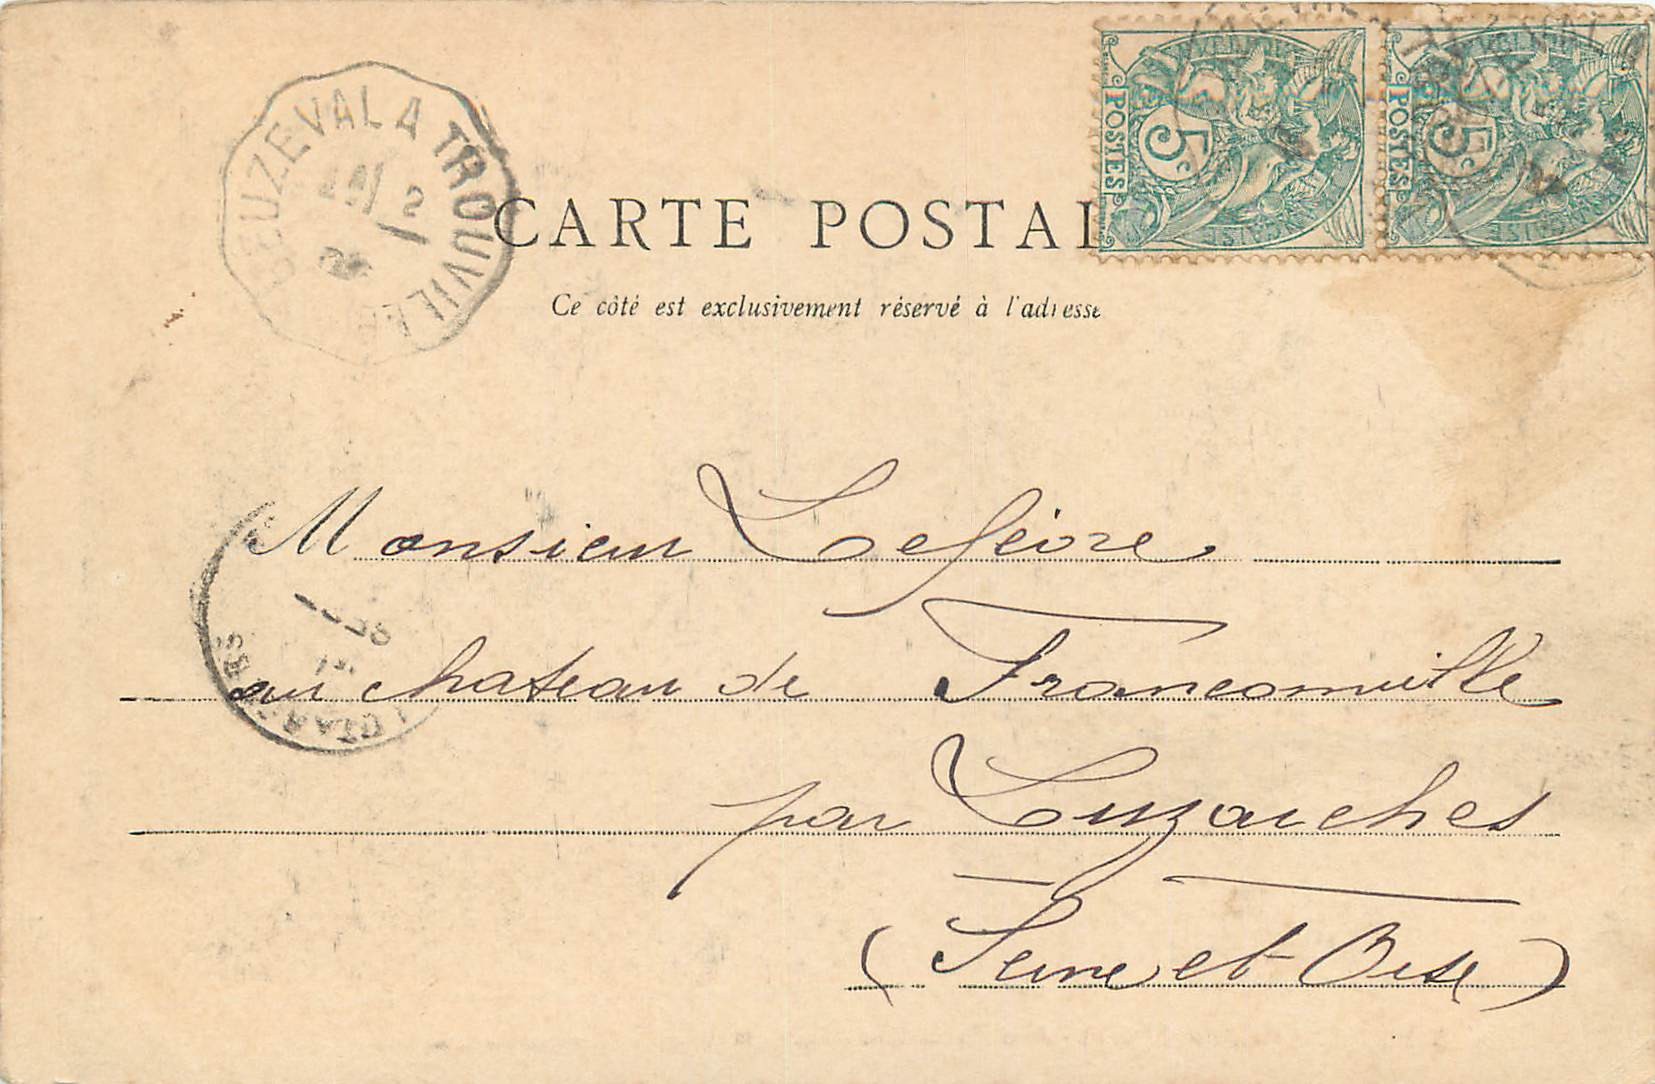 BEUZEVAL A TROUVILLE
2
CARTE POSTAL
Ce côté est exclusivement réservé à l'adresse
5c POSTES
5c POSTES
Monsieur Lefèvre
au chateau de Franconville
par Luzarches
(Seine et Oise)